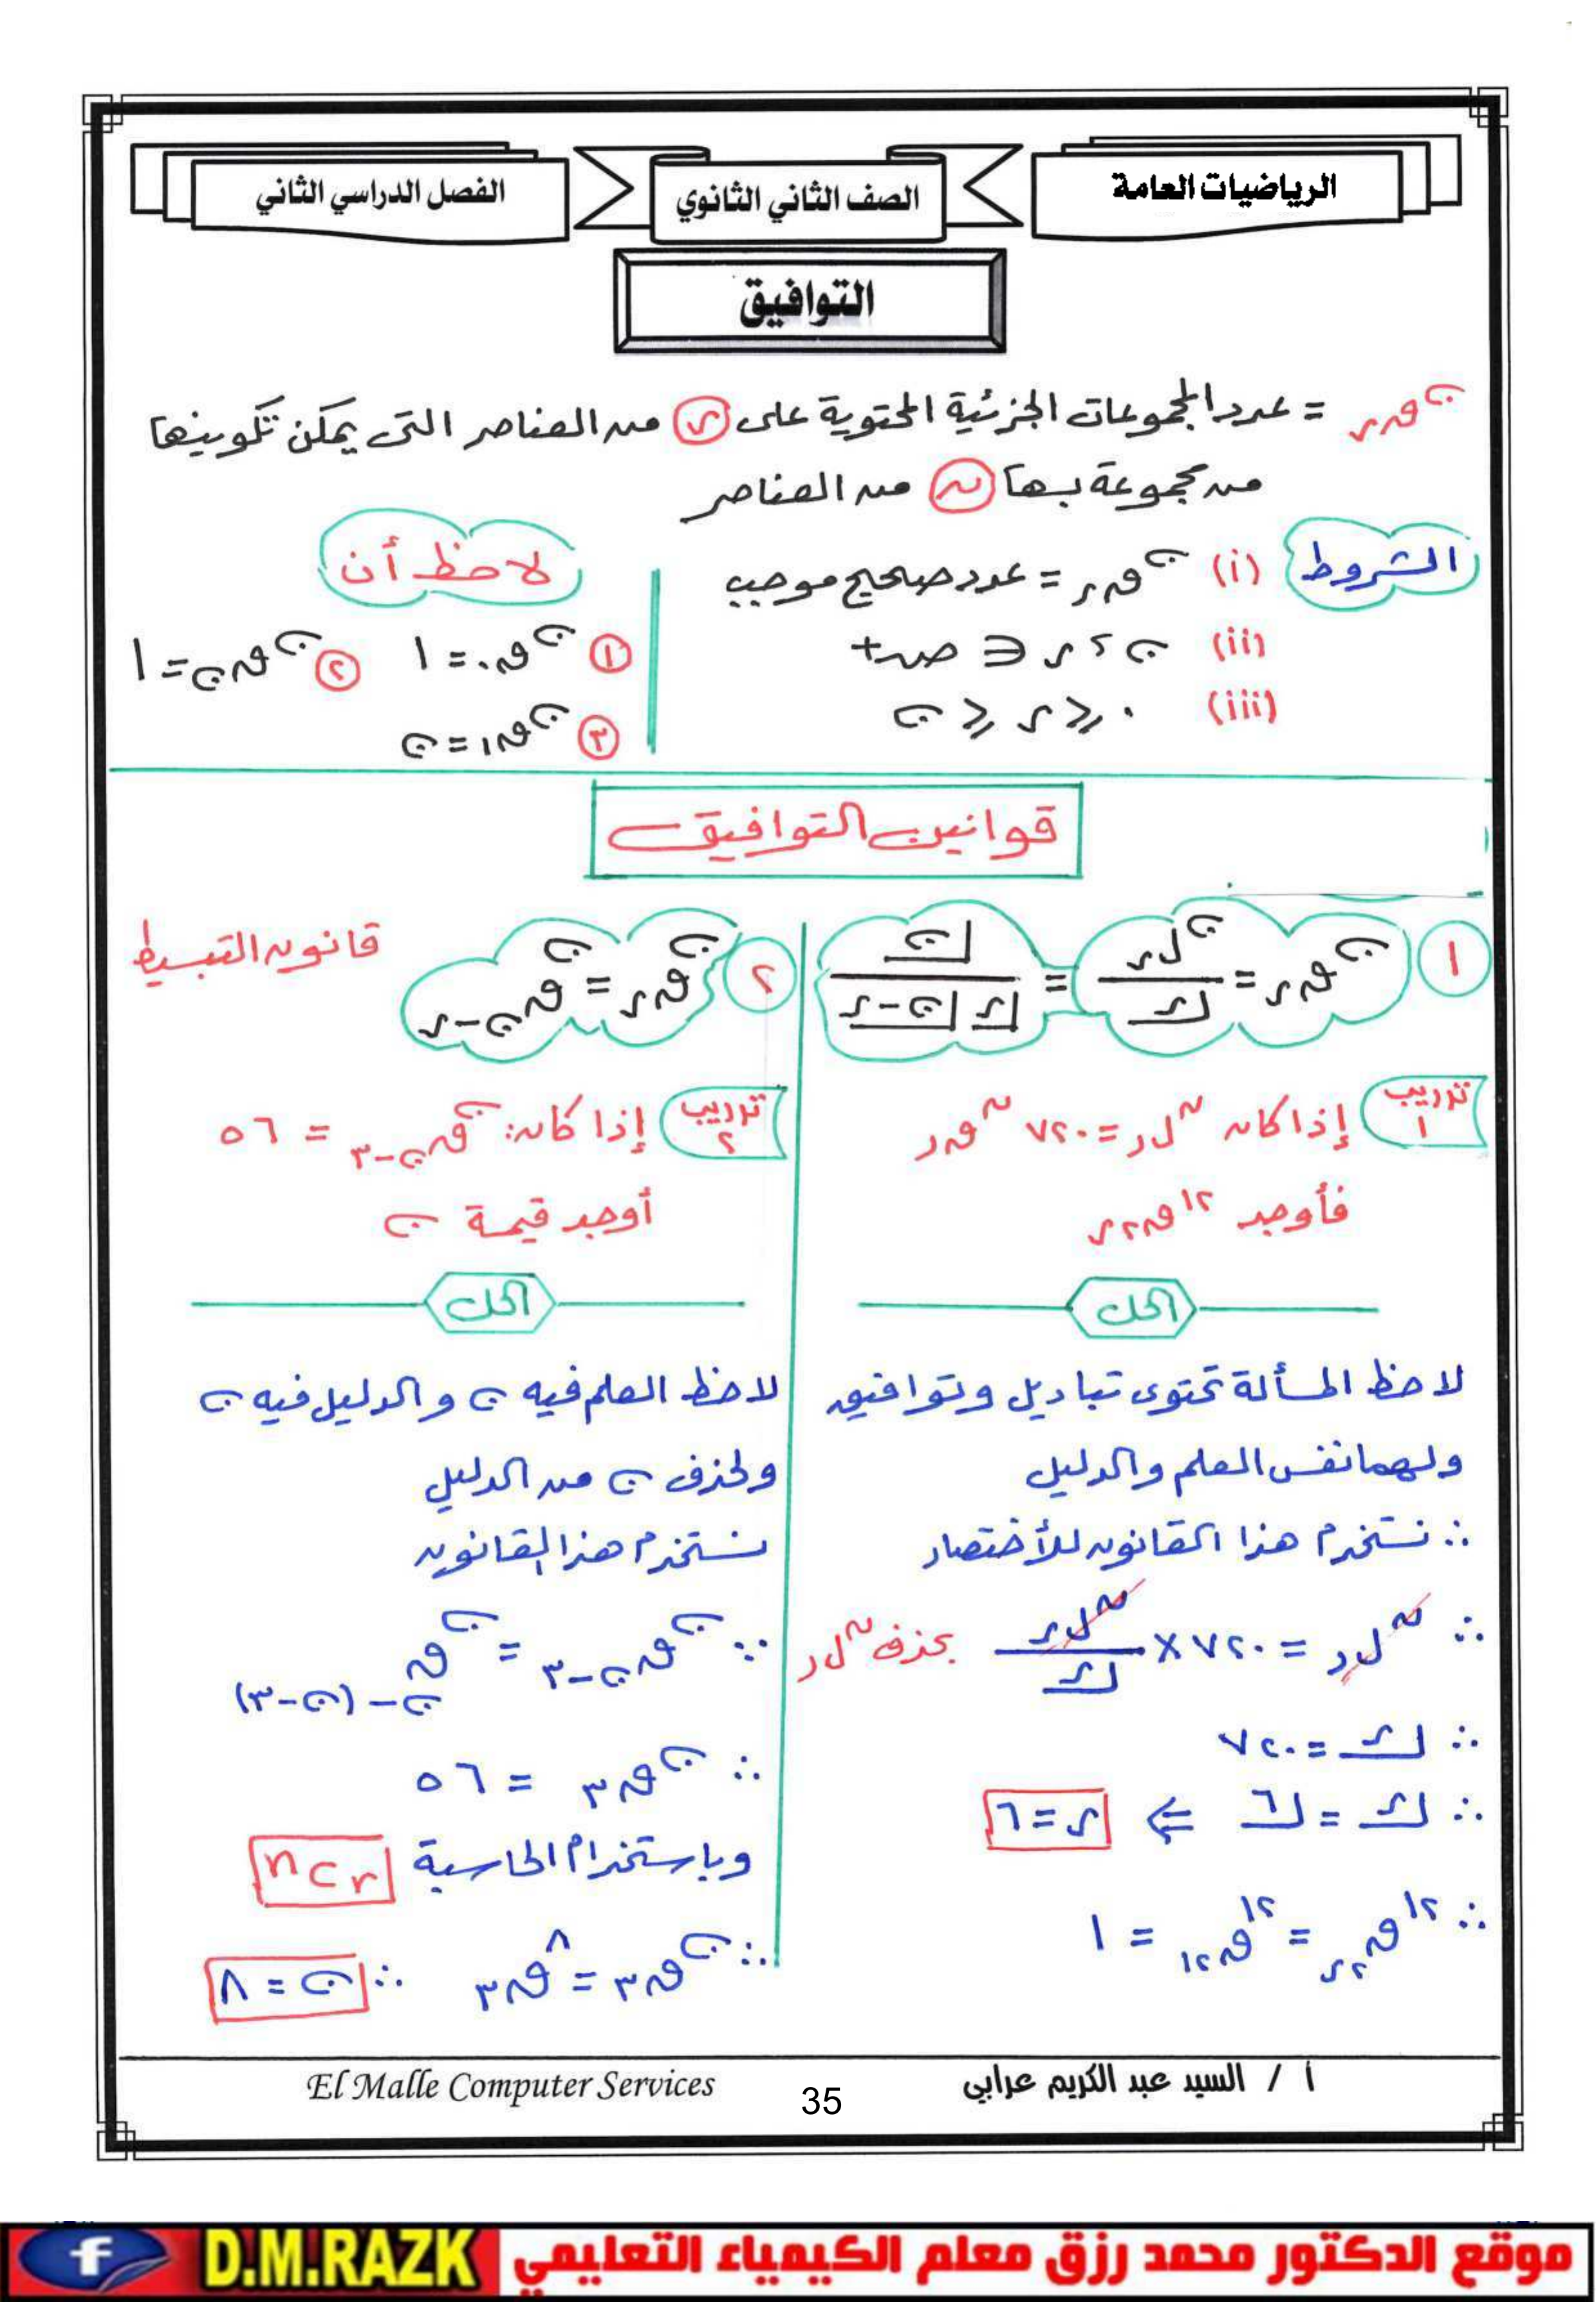 الرياضيات العامة
الصف الثاني الثانوي
الفصل الدراسي الثاني
التوافيق
ⁿقر = عدد المجموعات الجزئية المحتوية على ر من العناصر التى يمكن تكوينها
من مجموعة بها ن من العناصر
الشروط (i) ⁿقر = عدد صحيح موجب
(ii) ن ، ر ∈ صـ+
(iii) ٠ ≤ ر ≤ ن
لاحظ أن
١ ⁿق٠ = ١ ٢ ⁿقن = ١
٣ ⁿق١ = ن
قوانين التوافيق
١ ⁿقر = ⁿلر / ⌊ر = ⌊ن / ⌊ر ⌊ن-ر
تدريب ١ إذا كان ⁿلر = ٧٢٠ ⁿقر
فأوجد ¹²ق٢ر
الحل
لاحظ المسألة تحتوى تباديل وتوافيق
ولهما نفس العلم والدليل
∴ نستخدم هذا القانون للأختصار
∴ ⁿلر = ٧٢٠ × ⁿلر / ⌊ر بحذف ⁿلر
∴ ⌊ر = ٧٢٠
∴ ⌊ر = ⌊٦ ⇐ ر = ٦
∴ ¹²ق٢ر = ¹²ق١٢ = ١
٢ ⁿقر = ⁿقن-ر قانون التبسيط
تدريب ٢ إذا كان: ⁿقن-٣ = ٥٦
أوجد قيمة ن
الحل
لاحظ العلم فيه ن والدليل فيه ن
ولحذف ن من الدليل
نستخدم هذا القانون
∴ ⁿقن-٣ = ⁿقن-(ن-٣)
∴ ⁿق٣ = ٥٦
وباستخدام الحاسبة nCr
∴ ⁿق٣ = ⁸ق٣ ∴ ن = ٨
أ / السيد عبد الكريم عرابي
35
El Malle Computer Services
موقع الدكتور محمد رزق معلم الكيمياء التعليمي
D.M.RAZK
f